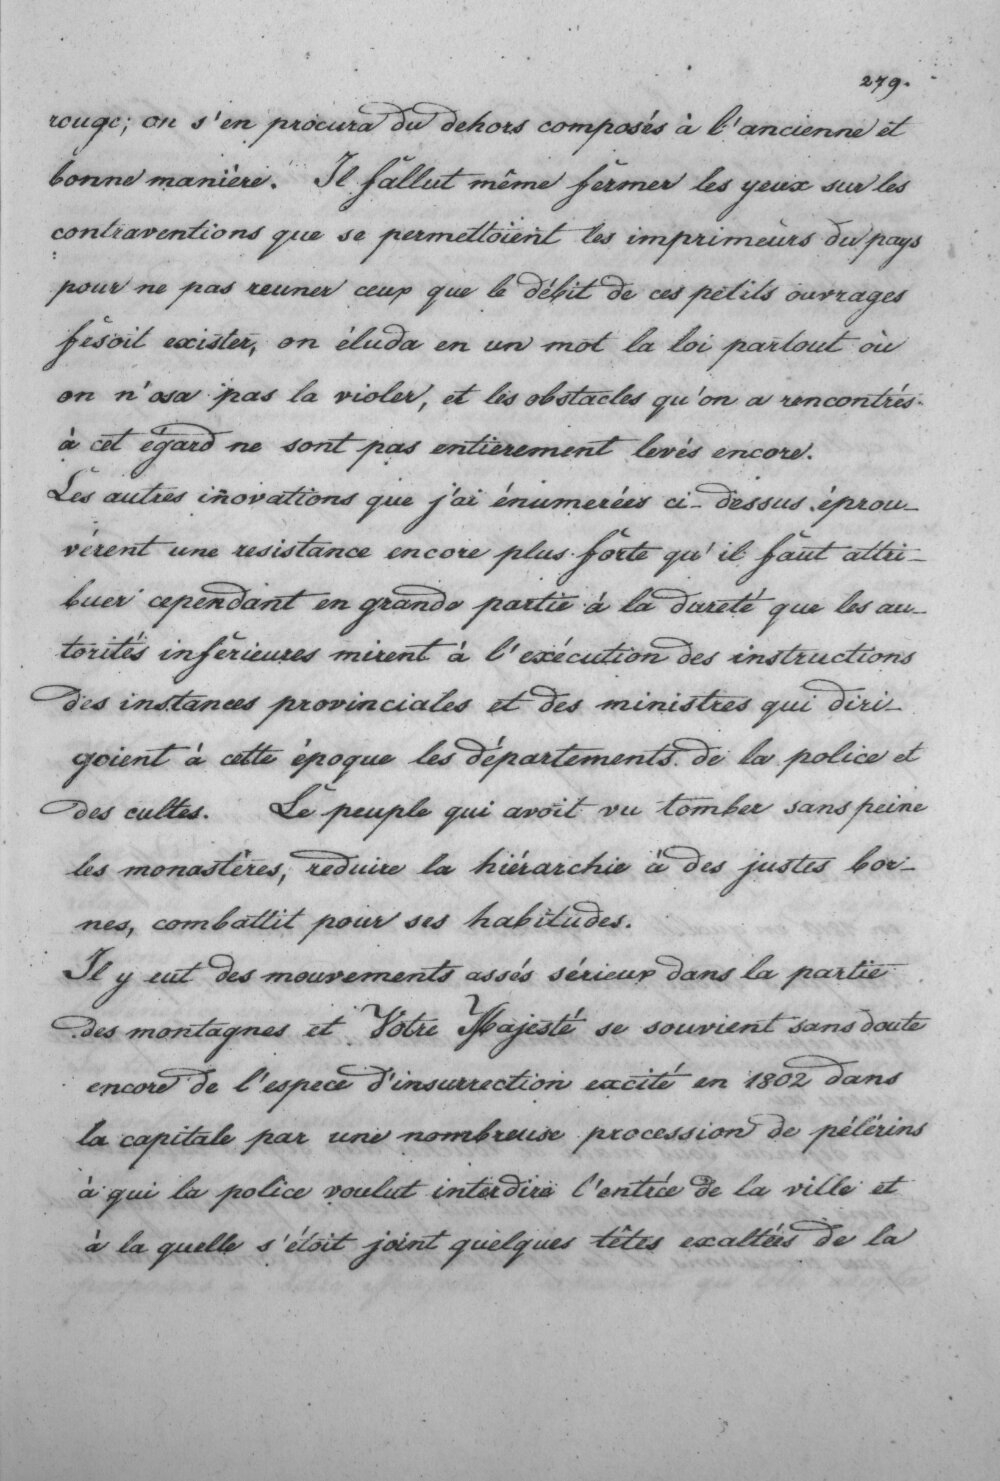 279.
rouge; on s'en procura du dehors composés à l'ancienne et
bonne manière. Il fallut même fermer les yeux sur les
contraventions que se permettoient les imprimeurs du pays
pour ne pas reuner ceux que le débit de ces petits ouvrages
fesoit exister, on éluda en un mot la loi partout où
on n'osa pas la violer, et les obstacles qu'on a rencontrés
à cet égard ne sont pas entierement levés encore.
Les autres inovations que j'ai énumerées ci-dessus éprou-
vérent une resistance encore plus forte qu'il faut attri-
buer cependant en grande partie à la dureté que les au-
torités inférieures mirent à l'exécution des instructions
des instances provinciales et des ministres qui diri-
goient à cette époque les départements de la police et
des cultes. Le peuple qui avoit vu tomber sans peine
les monastères, reduire la hiérarchie à des justes bor-
nes, combattit pour ses habitudes.
Il y eut des mouvements assés sérieux dans la partie
des montagnes et Votre Majesté se souvient sans doute
encore de l'espece d'insurrection excité en 1802 dans
la capitale par une nombreuse procession de pélérins
à qui la police voulut interdire l'entrée de la ville et
à la quelle s'étoit joint quelques têtes exaltées de la